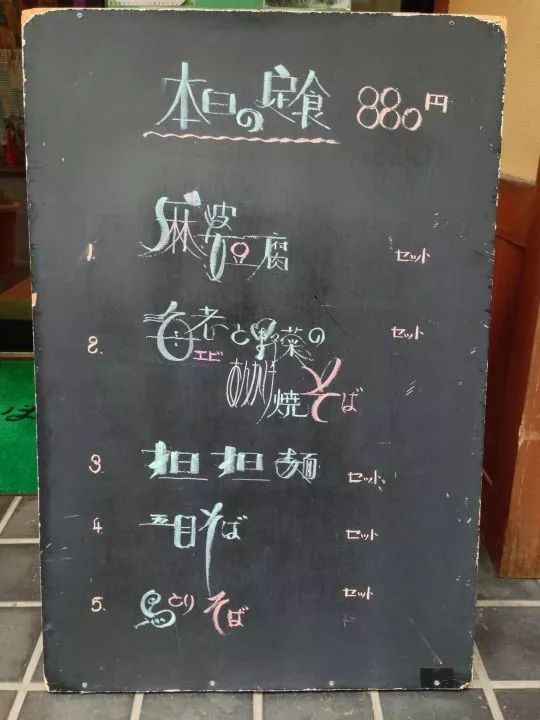 本日の定食 880円
1. 麻婆豆腐 セット
2. 海老と野菜の セット
エビ
あんかけ焼そば
3. 担担麺 セット
4. 五目そば セット
5. 鳥とりそば セット